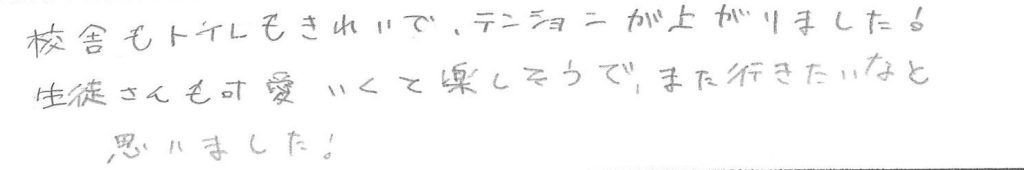 校舎もトイレもきれいで、テンションが上がりました!
生徒さんも可愛いくて楽しそうで、また行きたいなと
思いました!